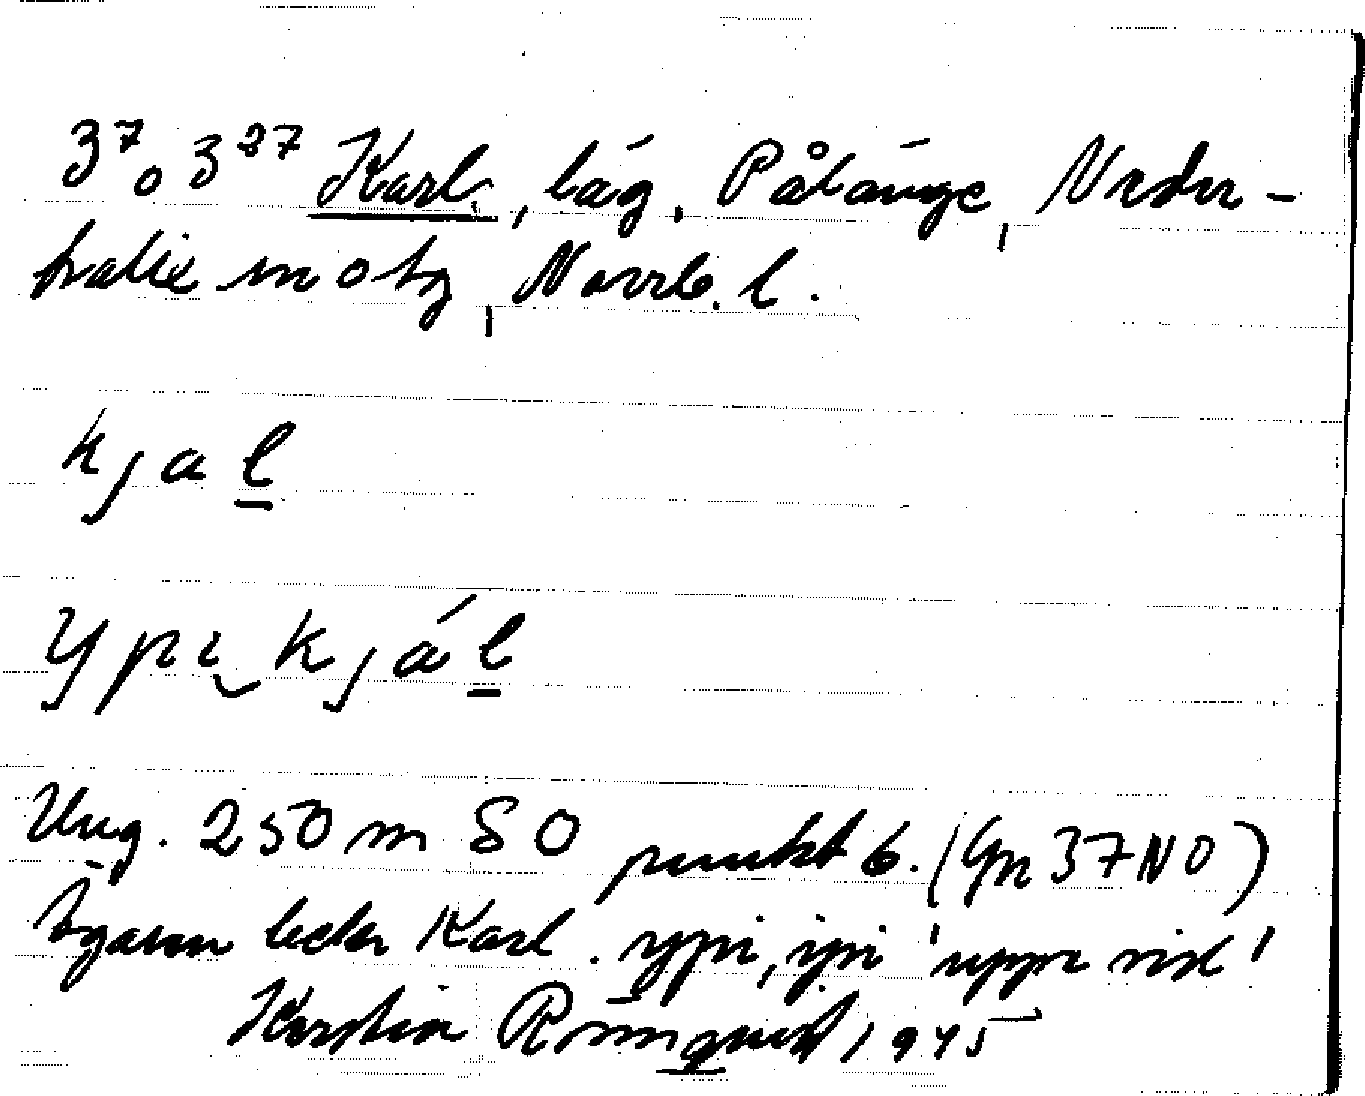 3⁷ o 3²⁷ Karl, läg., Pålänge, Neder-
kalix sn o tg, Norrb. l.
kjal
ypi kjál
Ung. 250 m SO punkt 6. (Gn 37 NO)
Ägaren heter Karl. ypi, ipi 'uppe vid'
Kerstin Rönnqvist, 1945